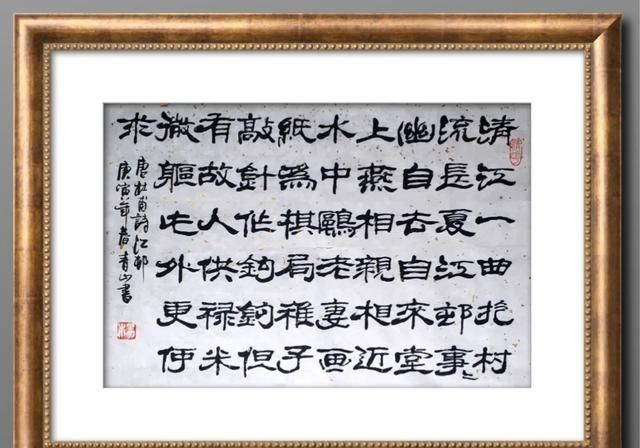 清江一曲抱村
流長夏江邨事〻
幽自去自來堂
上燕相親相近
水中鷗老妻画
紙爲棋局稚子
敲針作釣鈎但
有故人供禄米
微軀此外更何
求
唐杜甫詩江邨
庚寅春青山書